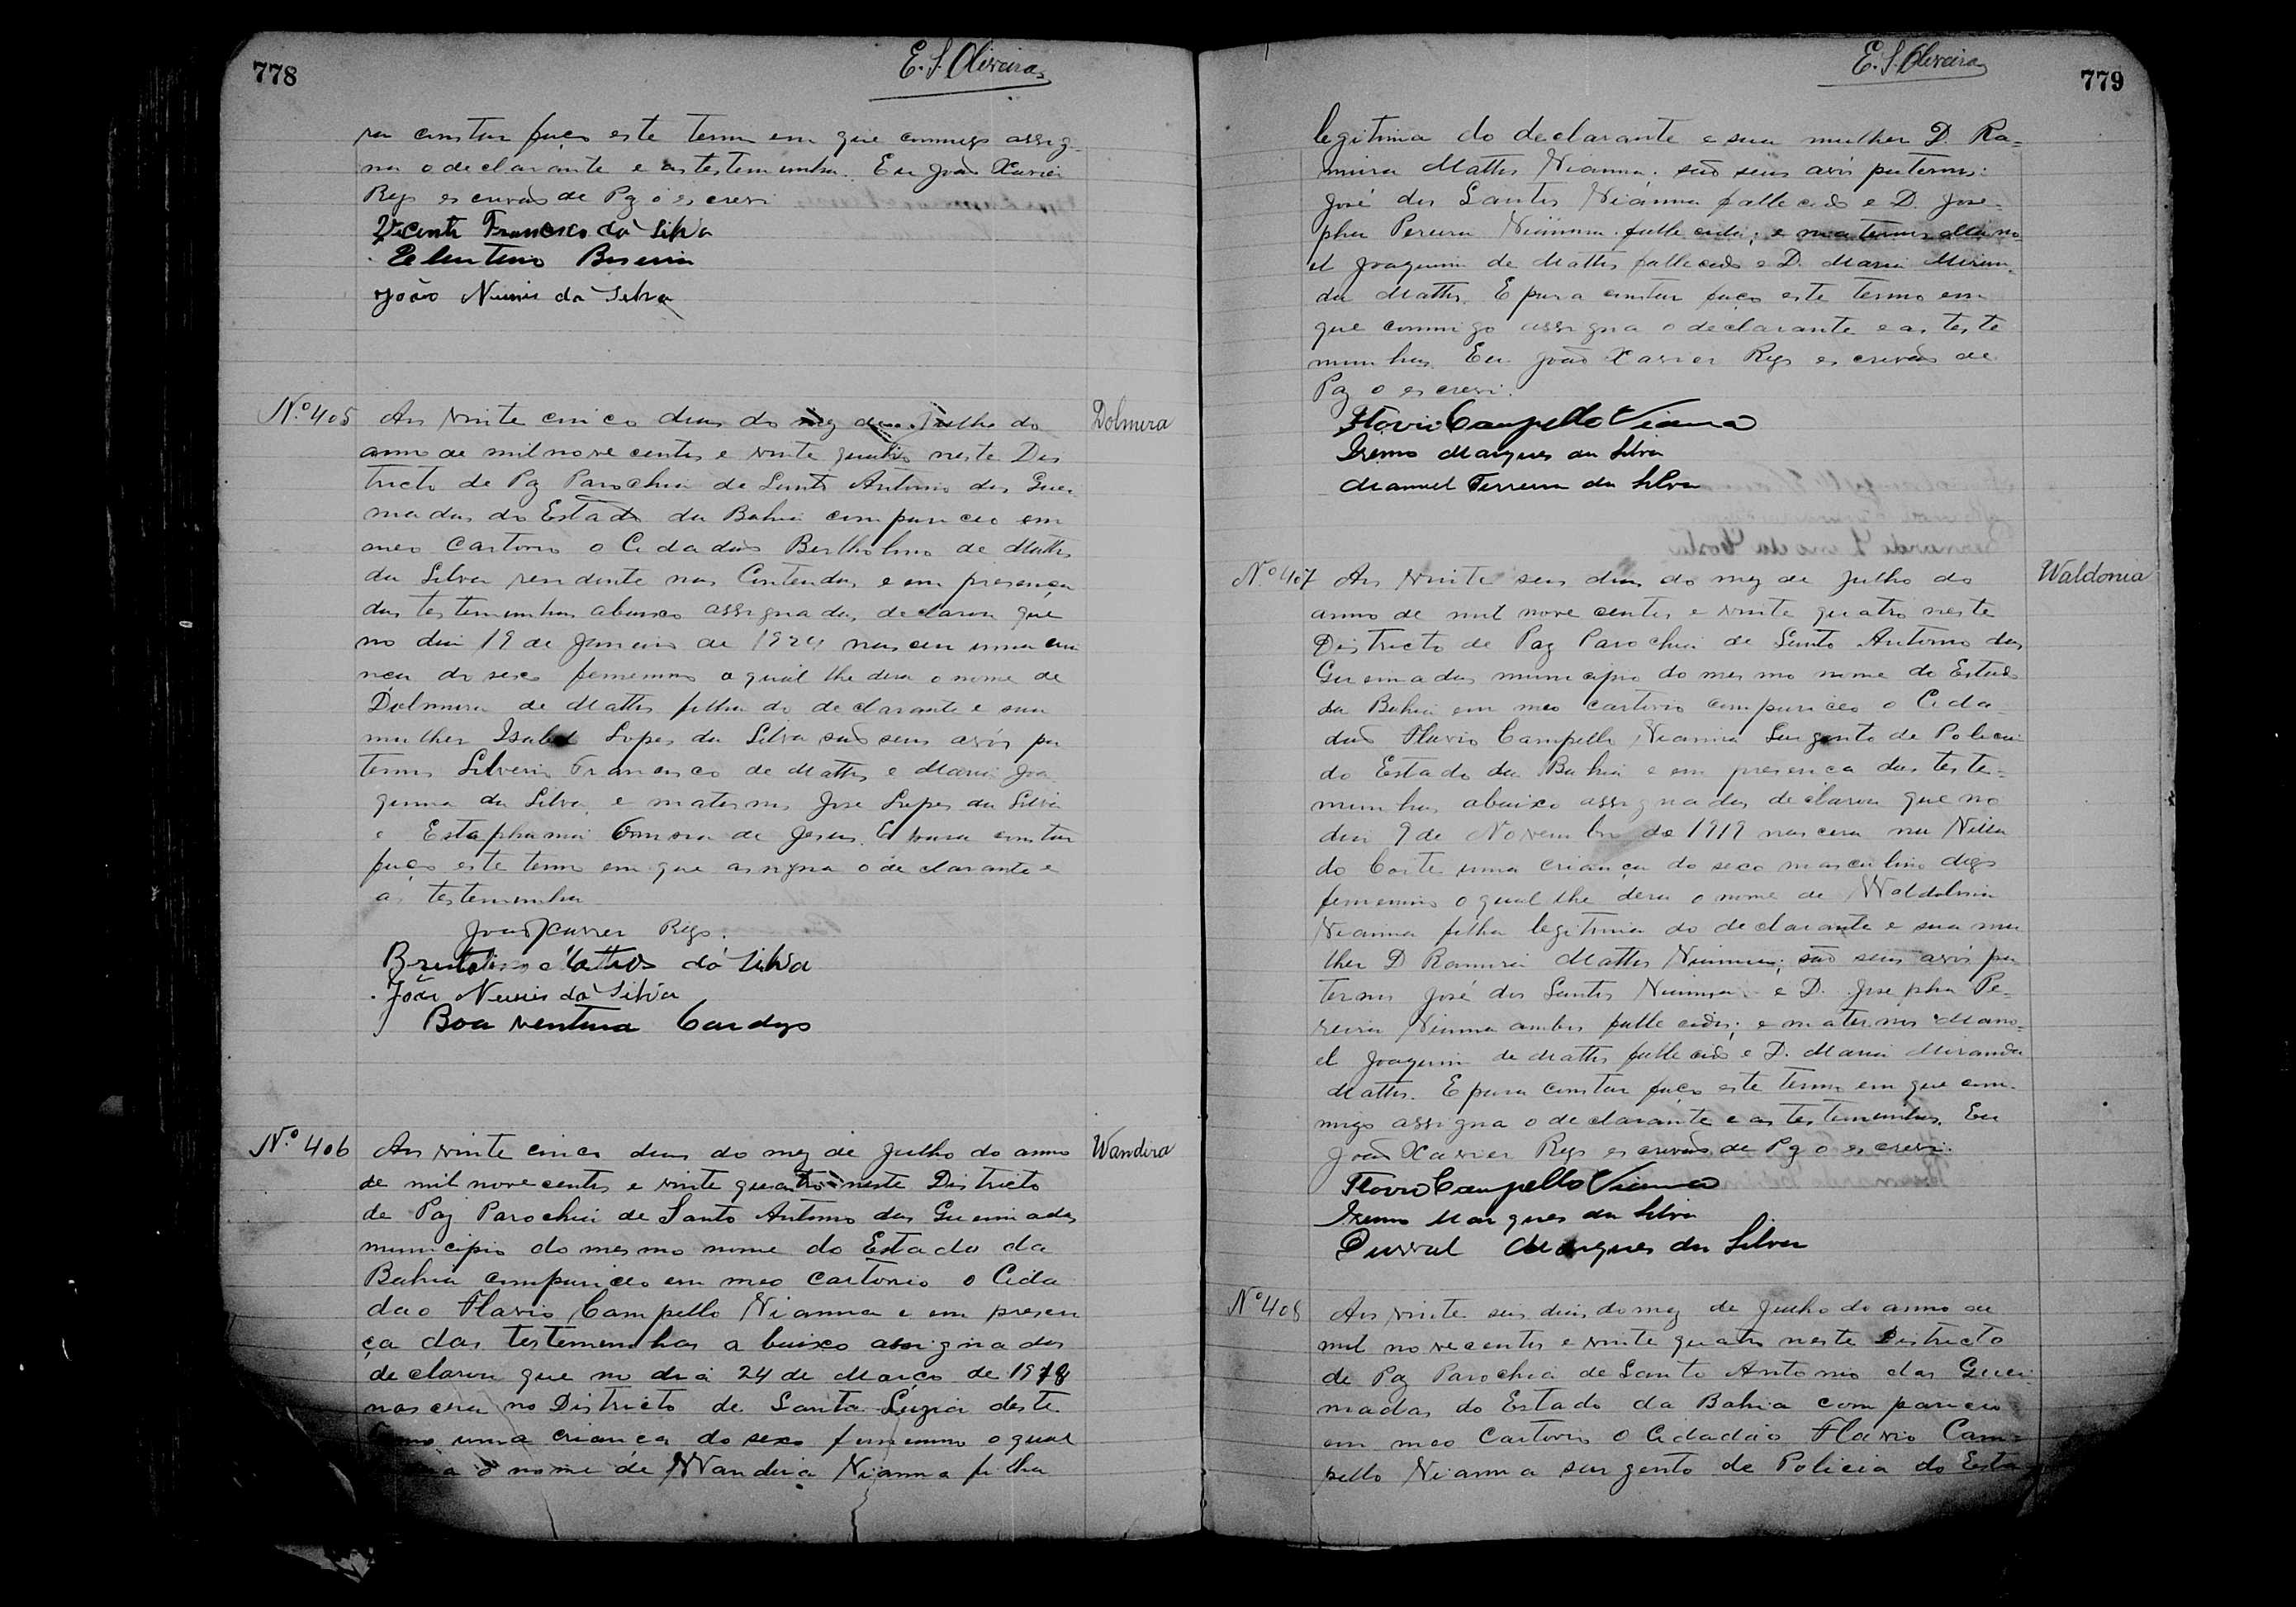 778
E. S. Oliveira
ra constar faço este termo em que commigo assig-
na o declarante e as testemunhas. Eu João Xavier
Rego escrivão de Paz o escrevi
Vicente Francisco da Silva
João Nunis da Silva
Nº 405
Aos vinte cinco dias do mez de Julho do
Dolmira
anno de mil nove centos e vinte quatro neste Dis
tricto de Paz Parochia de Santo Antonio das Quei
madas do Estado da Bahia compareceo em
meo Cartorio o Cidadão Bertholino de Mattos
da Silva residente nas Contendas e em presença
das testemunhas abaixo assignadas, declarou que
no dia 19 de Janeiro de 1924 nasceu uma cri
nça do sexo femenino a qual lhe dera o nome de
Dolmira de Mattos filha do declarante e sua
mulher Isabel Lopes da Silva são seus avós pa
ternos Silverio Francisco de Mattos e Maria Joa
quina da Silva, e maternos José Lopes da Silva
e de Jesus. E para constar
faço este termo em que assigna o declarante e
as testemunhas
João Xavier Rego.
Mattos da Silva
João Nunis da Silva
Boa ventura Cardozo
Nº 406
Aos vinte cinco dias do mez de Julho do anno
Wandira
de mil nove centos e vinte quatro neste Districto
de Paz Parochia de Santo Antonio das Queimadas
municipio do mesmo nome do Estado da
Bahia compareceo em meo cartorio o Cida
dao Flavio Campello Vianna e em presen
ça das testemunhas a baixo assignadas
declarou que no dia 24 de Março de 1918
nascera no Districto de Santa Luzia deste
uma criança do sexo femenino o qual
o nome de Wandira Vianna filha
779
E. S. Oliveira
legitima do declarante e sua mulher D. Ra-
mira Mattos Vianna. são seus avós paternos:
José dos Santos Vianna fallecido e D. Jose-
pha Pereira Vianna fallecida; e maternos Mano
el Joaquim de Mattos fallecido e D. Maria Miran-
da Mattos. E para constar faço este termo em
que commigo assigna o declarante e as teste
munhas. Eu João Xavier Rego escrivão de
Paz o escrevi.
Flavio Campello Vianna
Marques da Silva
Manuel Ferreira da Silva
Nº 407
Aos vinte seis dias do mez de Julho do
Waldonia
anno de mil nove centos e vinte quatro neste
Districto de Paz Parochia de Santo Antonio das
Queimadas municipio do mesmo nome do Estado
da Bahia em meo cartorio compareceo o Cida-
dão Flavio Campello Vianna Sargento de Policia
do Estado da Bahia e em presença das teste-
munhas abaixo assignadas declarou que no
dia 9 de Novembro de 1919 nascera na Villa
do Corte uma criança do sexo masculino digo
femenino o qual lhe dera o nome de
Vianna filha legitima do declarante e sua mu
lher D Ramira Mattos Vianna; são seus avós pa
ternos José dos Santos Vianna e D. Josepha Pe-
reira Vianna ambos fallecidos; e maternos Mano-
el Joaquim de Mattos fallecido e D. Maria Miranda
Mattos. E para constar faço este termo em que com-
migo assigna o declarante e as testemunhas. Eu
João Xavier Rego escrivão de Paz o escrevi.
Flavio Campello Vianna
Marques da Silva
Durval Marques da Silva
Nº 408
Aos vinte seis dias do mez de Julho do anno de
mil novecentos e vinte quatro neste Districto
de Paz Parochia de Santo Antonio das Quei
madas do Estado da Bahia compareceu
em meo Cartorio o Cidadão Flavio Cam-
pello Vianna sargento de Policia do Esta